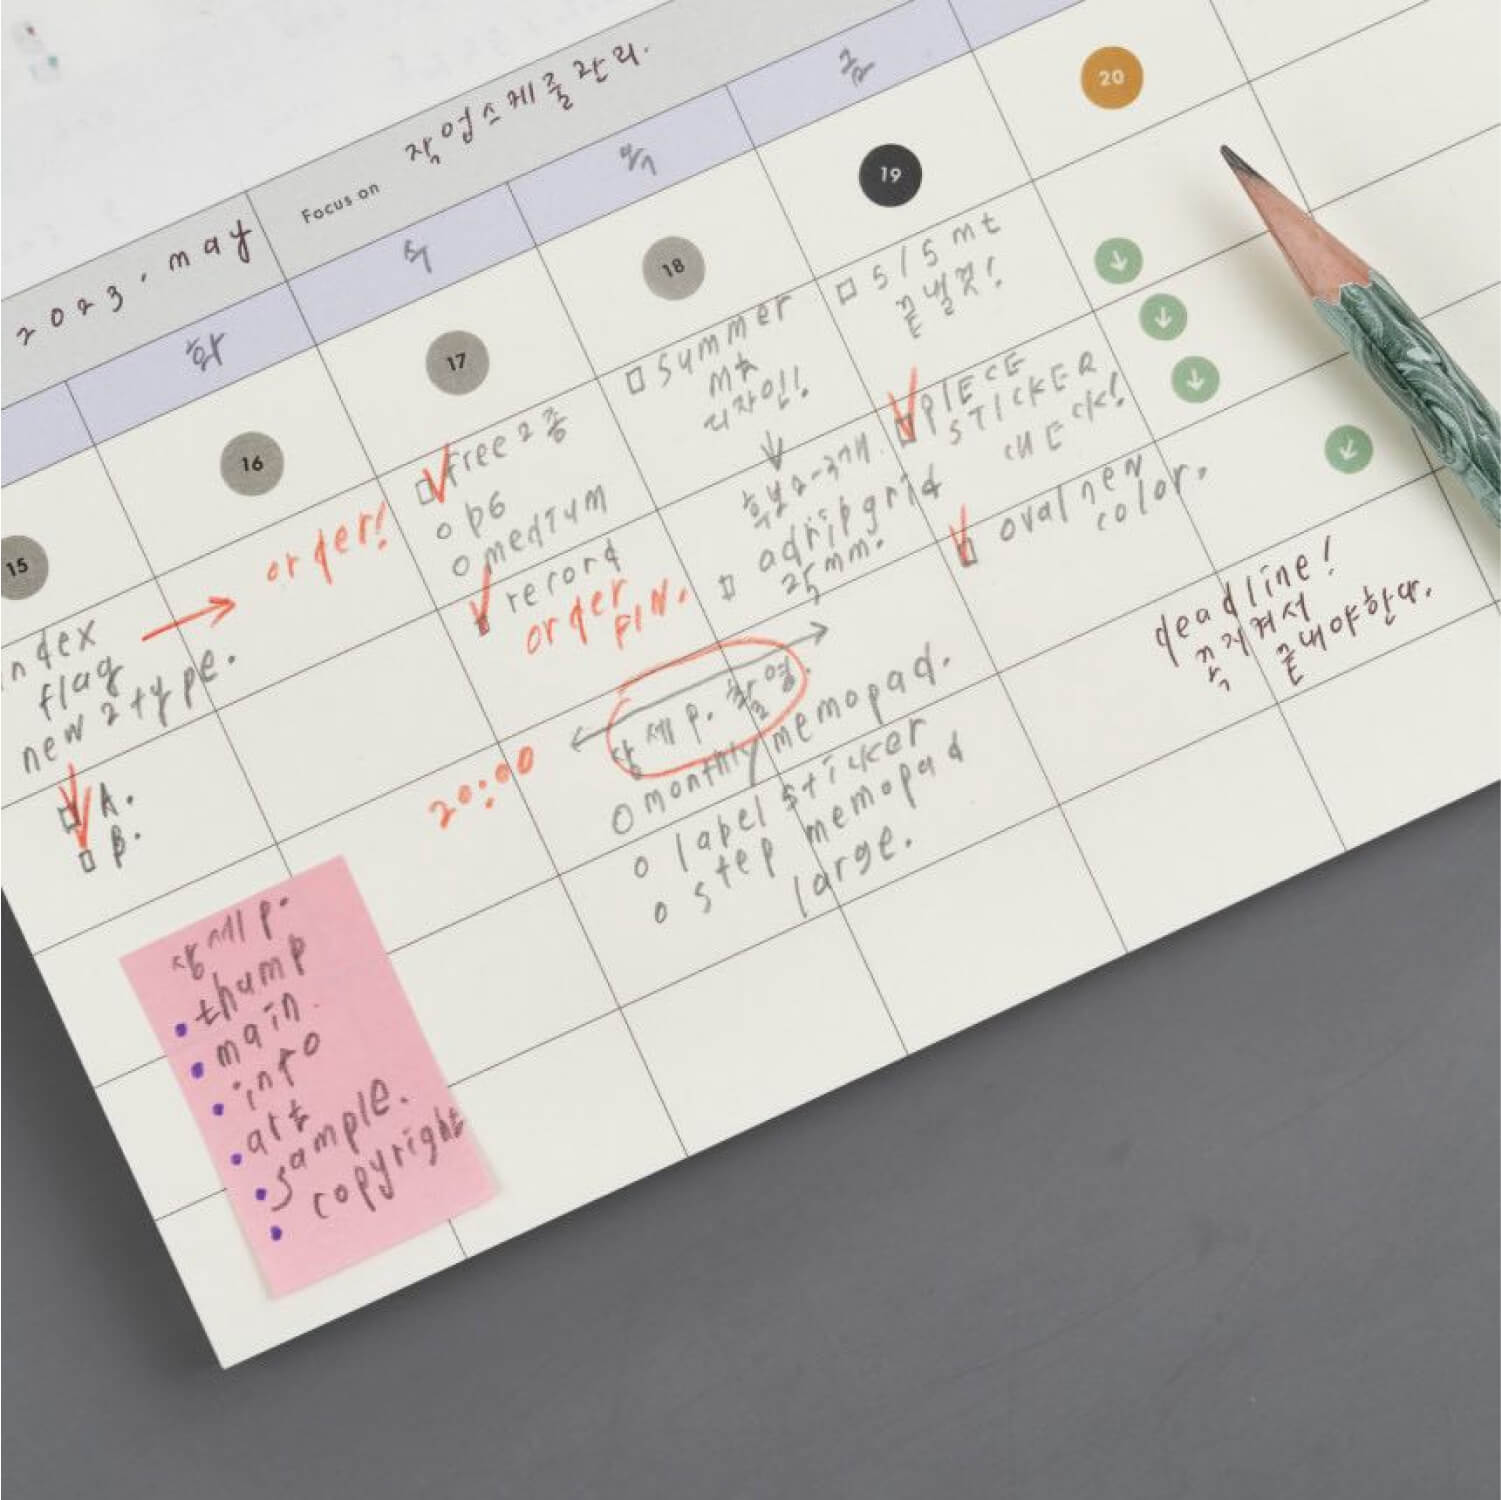 2023. may
Focus on 작업스케줄관리.
화
수
목
금
15
index
flag
new 2 type.
A.
B.
16
order!
17
free 2종
p6
medium
record
order
PIN.
20:00
18
summer
mt
디자인!!
후보 2-3개.
grid
25mm.
상세 p. 촬영.
monthly memopad.
label sticker
step memopad
large.
19
S/S mt
끝낼것!
PIECE
STICKER
CHECK!
oval new
color.
20
deadline!
꼭 지켜서
끝내야한다.
상세 p.
thump
main.
info
art
sample.
copyright